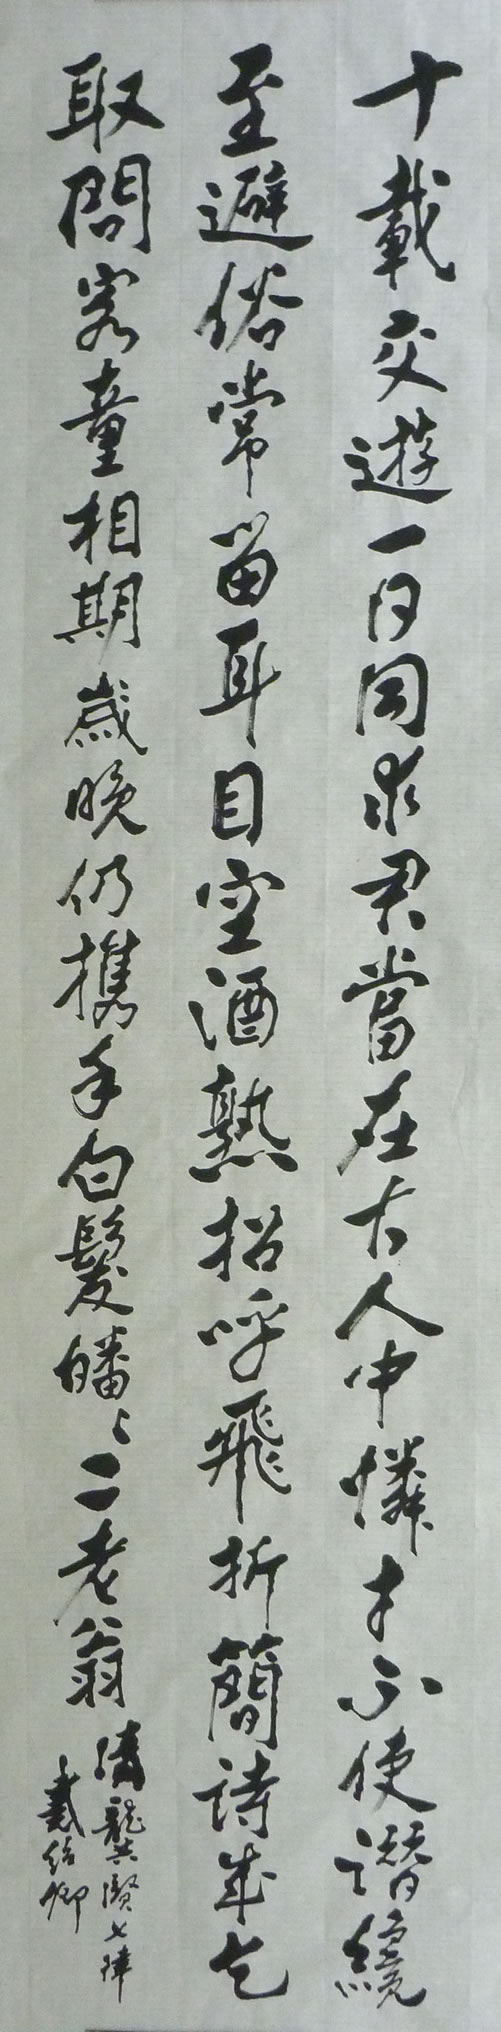 十載交遊一日同求君當在古人中憐才不使謗纔
至避俗常留耳目空酒熟招呼飛折簡詩成乞
取問家童相期歲晚仍攜手白髮皤〻二老翁
清龔賢七律
戴紹卿